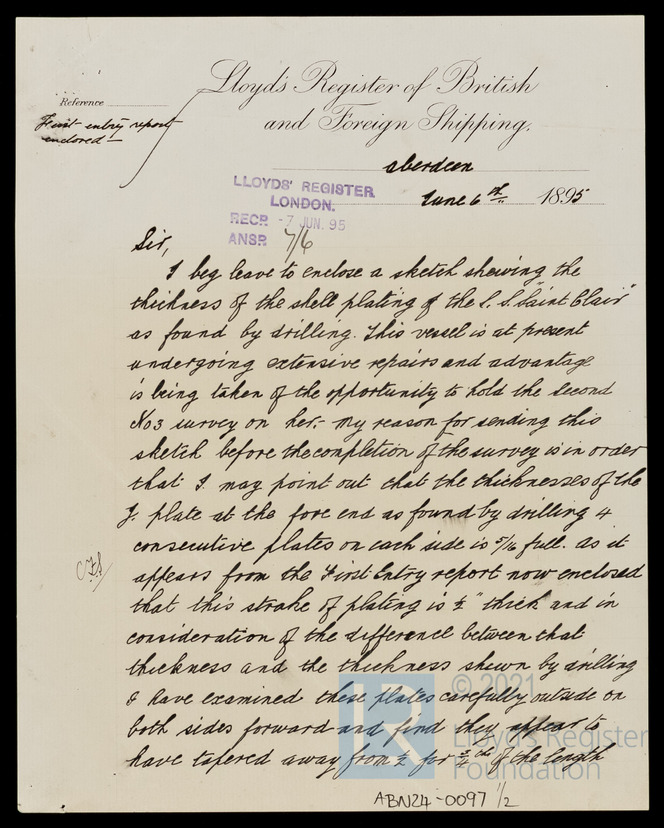 Lloyd's Register of British
and Foreign Shipping.
Reference
First entry report
enclosed -
Aberdeen
June 6th 1895
LLOYDS' REGISTER
LONDON.
RECD. -7 JUN. 95
ANSD. 7/6
Sir,
I beg leave to enclose a sketch shewing the
thickness of the shell plating of the S.S. "Saint Clair"
as found by drilling. This vessel is at present
undergoing extensive repairs and advantage
is being taken of the opportunity to hold the second
No 3 survey on her. My reason for sending this
sketch before the completion of the survey is in order
that I may point out that the thicknesses of the
J. plate at the fore end as found by drilling 4
consecutive plates on each side is 5/16 full. As it
appears from the First Entry report now enclosed
that this strake of plating is ½" thick and in
consideration of the difference between that
thickness and the thickness shewn by drilling
I have examined these plates carefully outside on
both sides forward and find they appear to
have tapered away from ½ for of the length
ABN24-0097 1/2
LR
© 2021
Lloyd's Register
Foundation